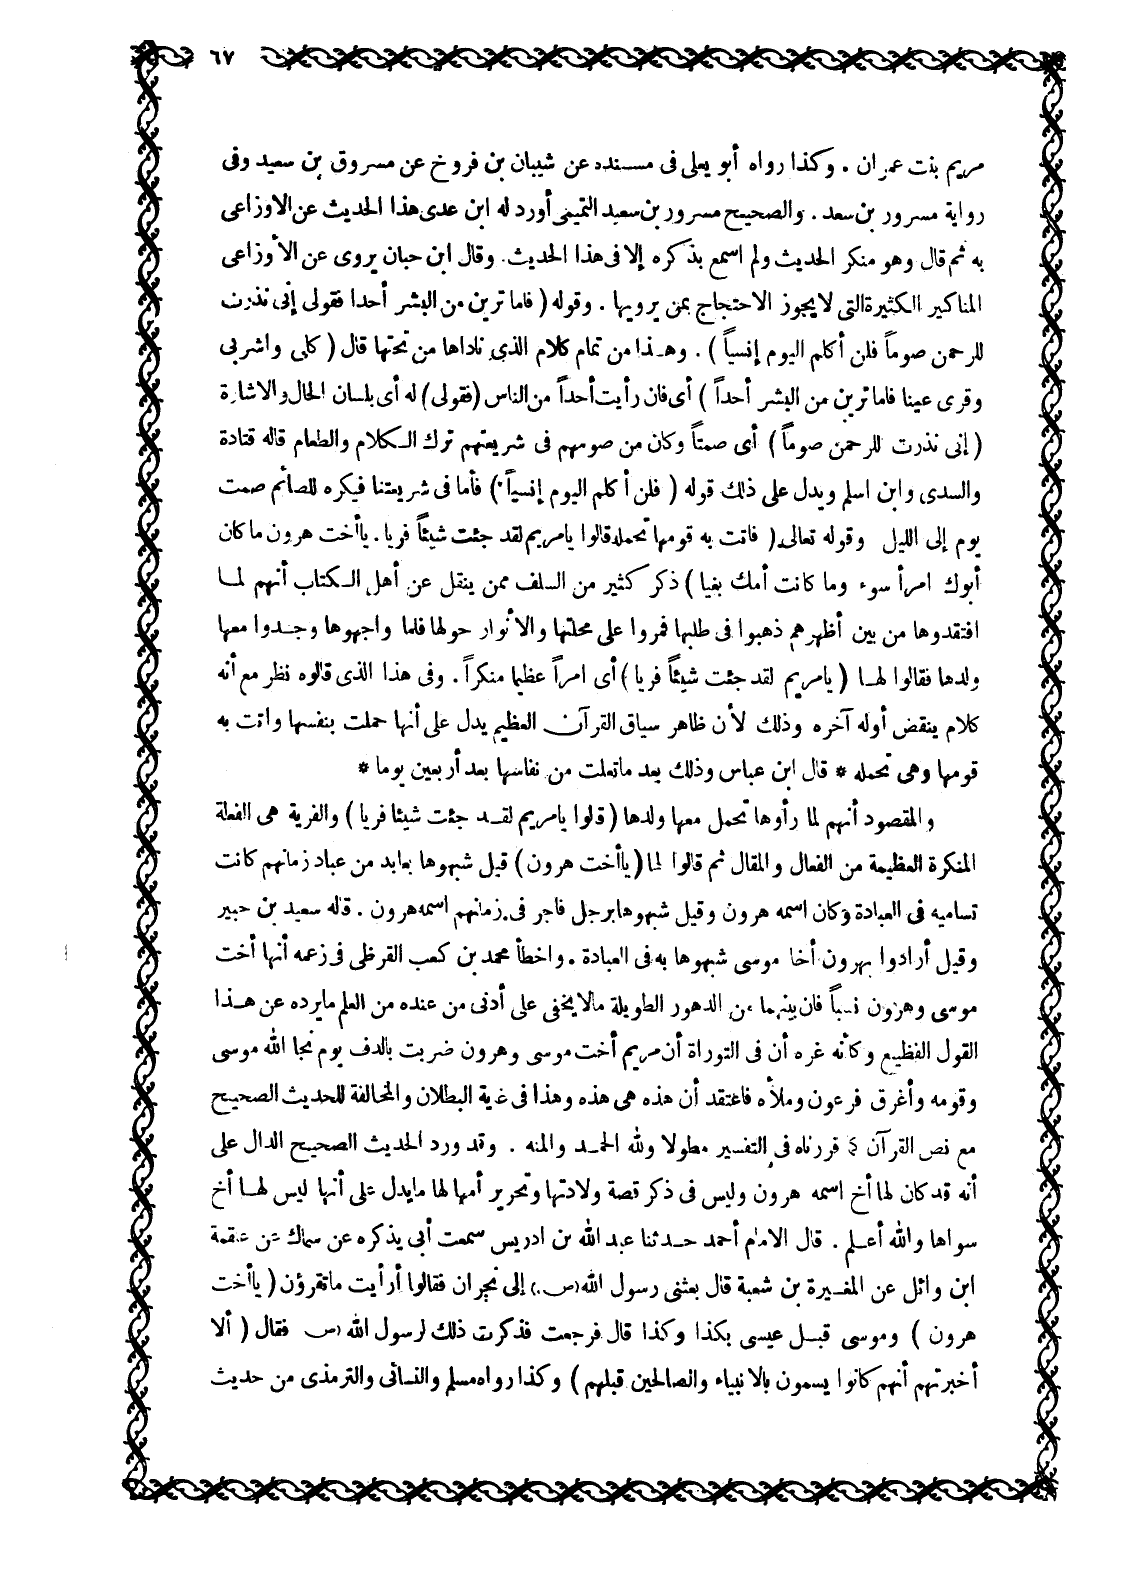 ٦٧
مريم بنت عمران . وكذا رواه أبو يعلى فى مسنده عن شيبان بن فروخ عن مسروق بن سعيد وفى
رواية مسرور بن سعد . والصحيح مسرور بن سعيد التميمى أورد له ابن عدى هذا الحديث عن الاوزاعى
به ثم قال وهو منكر الحديث ولم اسمع بذكره إلا فى هذا الحديث . وقال ابن حبان يروى عن الأوزاعى
المناكير الكثيرة التى لا يجوز الاحتجاج بمن يرويها . وقوله ( فاما ترين من البشر أحدا فقولى إنى نذرت
للرحمن صوماً فلن أكلم اليوم إنسياً ) . وهذا من تمام كلام الذى ناداها من تحتها قال ( كلى واشربى
وقرى عينا فاما ترين من البشر أحداً ) أى فان رأيت أحداً من الناس (فقولى) له أى بلسان الحال والاشارة
( إنى نذرت للرحمن صوماً ) أى صمتاً وكان من صومهم فى شريعتهم ترك الكلام والطعام قاله قتادة
والسدى وابن اسلم ويدل على ذلك قوله ( فلن أكلم اليوم إنسياً ) فأما فى شريعتنا فيكره للصائم صمت
يوم إلى الليل وقوله تعالى ( فاتت به قومها تحمله قالوا يامريم لقد جئت شيئاً فريا . يأأخت هرون ما كان
أبوك امرأ سوء وما كانت أمك بغيا ) ذكر كثير من السلف ممن ينقل عن أهل الكتاب أنهم لما
افتقدوها من بين أظهرهم ذهبوا فى طلبها فمروا على محلتها والأنوار حولها فلما واجهوها وجدوا معها
ولدها فقالوا لها ( يامريم لقد جئت شيئاً فريا ) أى امراً عظيما منكراً . وفى هذا الذى قالوه نظر مع أنه
كلام ينقض أوله آخره وذلك لأن ظاهر سياق القرآن العظيم يدل على أنها حملت بنفسها واتت به
قومها وهى تحمله * قال ابن عباس وذلك بعد ماتعلت من نفاسها بعد أربعين يوما *
والمقصود أنهم لما رأوها تحمل معها ولدها ( قالوا يامريم لقد جئت شيئا فريا ) والفرية هى الفعلة
المنكرة العظيمة من الفعال والمقال ثم قالوا لها ( يأأخت هرون ) قيل شبهوها بعابد من عباد زمانهم كانت
تساميه فى العبادة وكان اسمه هرون وقيل شبهوها برجل فاجر فى زمانهم اسمه هرون . قاله سعيد بن جبير
وقيل أرادوا بهرون أخا موسى شبهوها به فى العبادة . واخطأ محمد بن كعب القرظى فى زعمه أنها أخت
موسى وهرون نسباً فان بينهما من الدهور الطويلة مالا يخفى على أدنى من عنده من العلم مايرده عن هذا
القول الفظيع وكأنه غره أن فى التوراة أن مريم أخت موسى وهرون ضربت بالدف يوم نجا الله موسى
وقومه وأغرق فرعون وملأه فاعتقد أن هذه هى هذه وهذا فى غية البطلان والمخالفة للحديث الصحيح
مع نص القرآن كما قررناه فى التفسير مطولا ولله الحمد والمنه . وقد ورد الحديث الصحيح الدال على
أنه قد كان لها أخ اسمه هرون وليس فى ذكر قصة ولادتها وتحرير أمها لها مايدل على أنها ليس لها أخ
سواها والله أعلم . قال الامام أحمد حدثنا عبد الله بن ادريس سمعت أبى يذكره عن سماك عن علقمة
ابن وائل عن المغيرة بن شعبة قال بعثنى رسول الله (ص) إلى نجران فقالوا أرأيت ماتقرؤن ( يأأخت
هرون ) وموسى قبل عيسى بكذا وكذا قال فرجعت فذكرت ذلك لرسول الله (ص) فقال ( ألا
أخبرتهم أنهم كانوا يسمون بالانبياء والصالحين قبلهم ) وكذا رواه مسلم والنسائى والترمذى من حديث